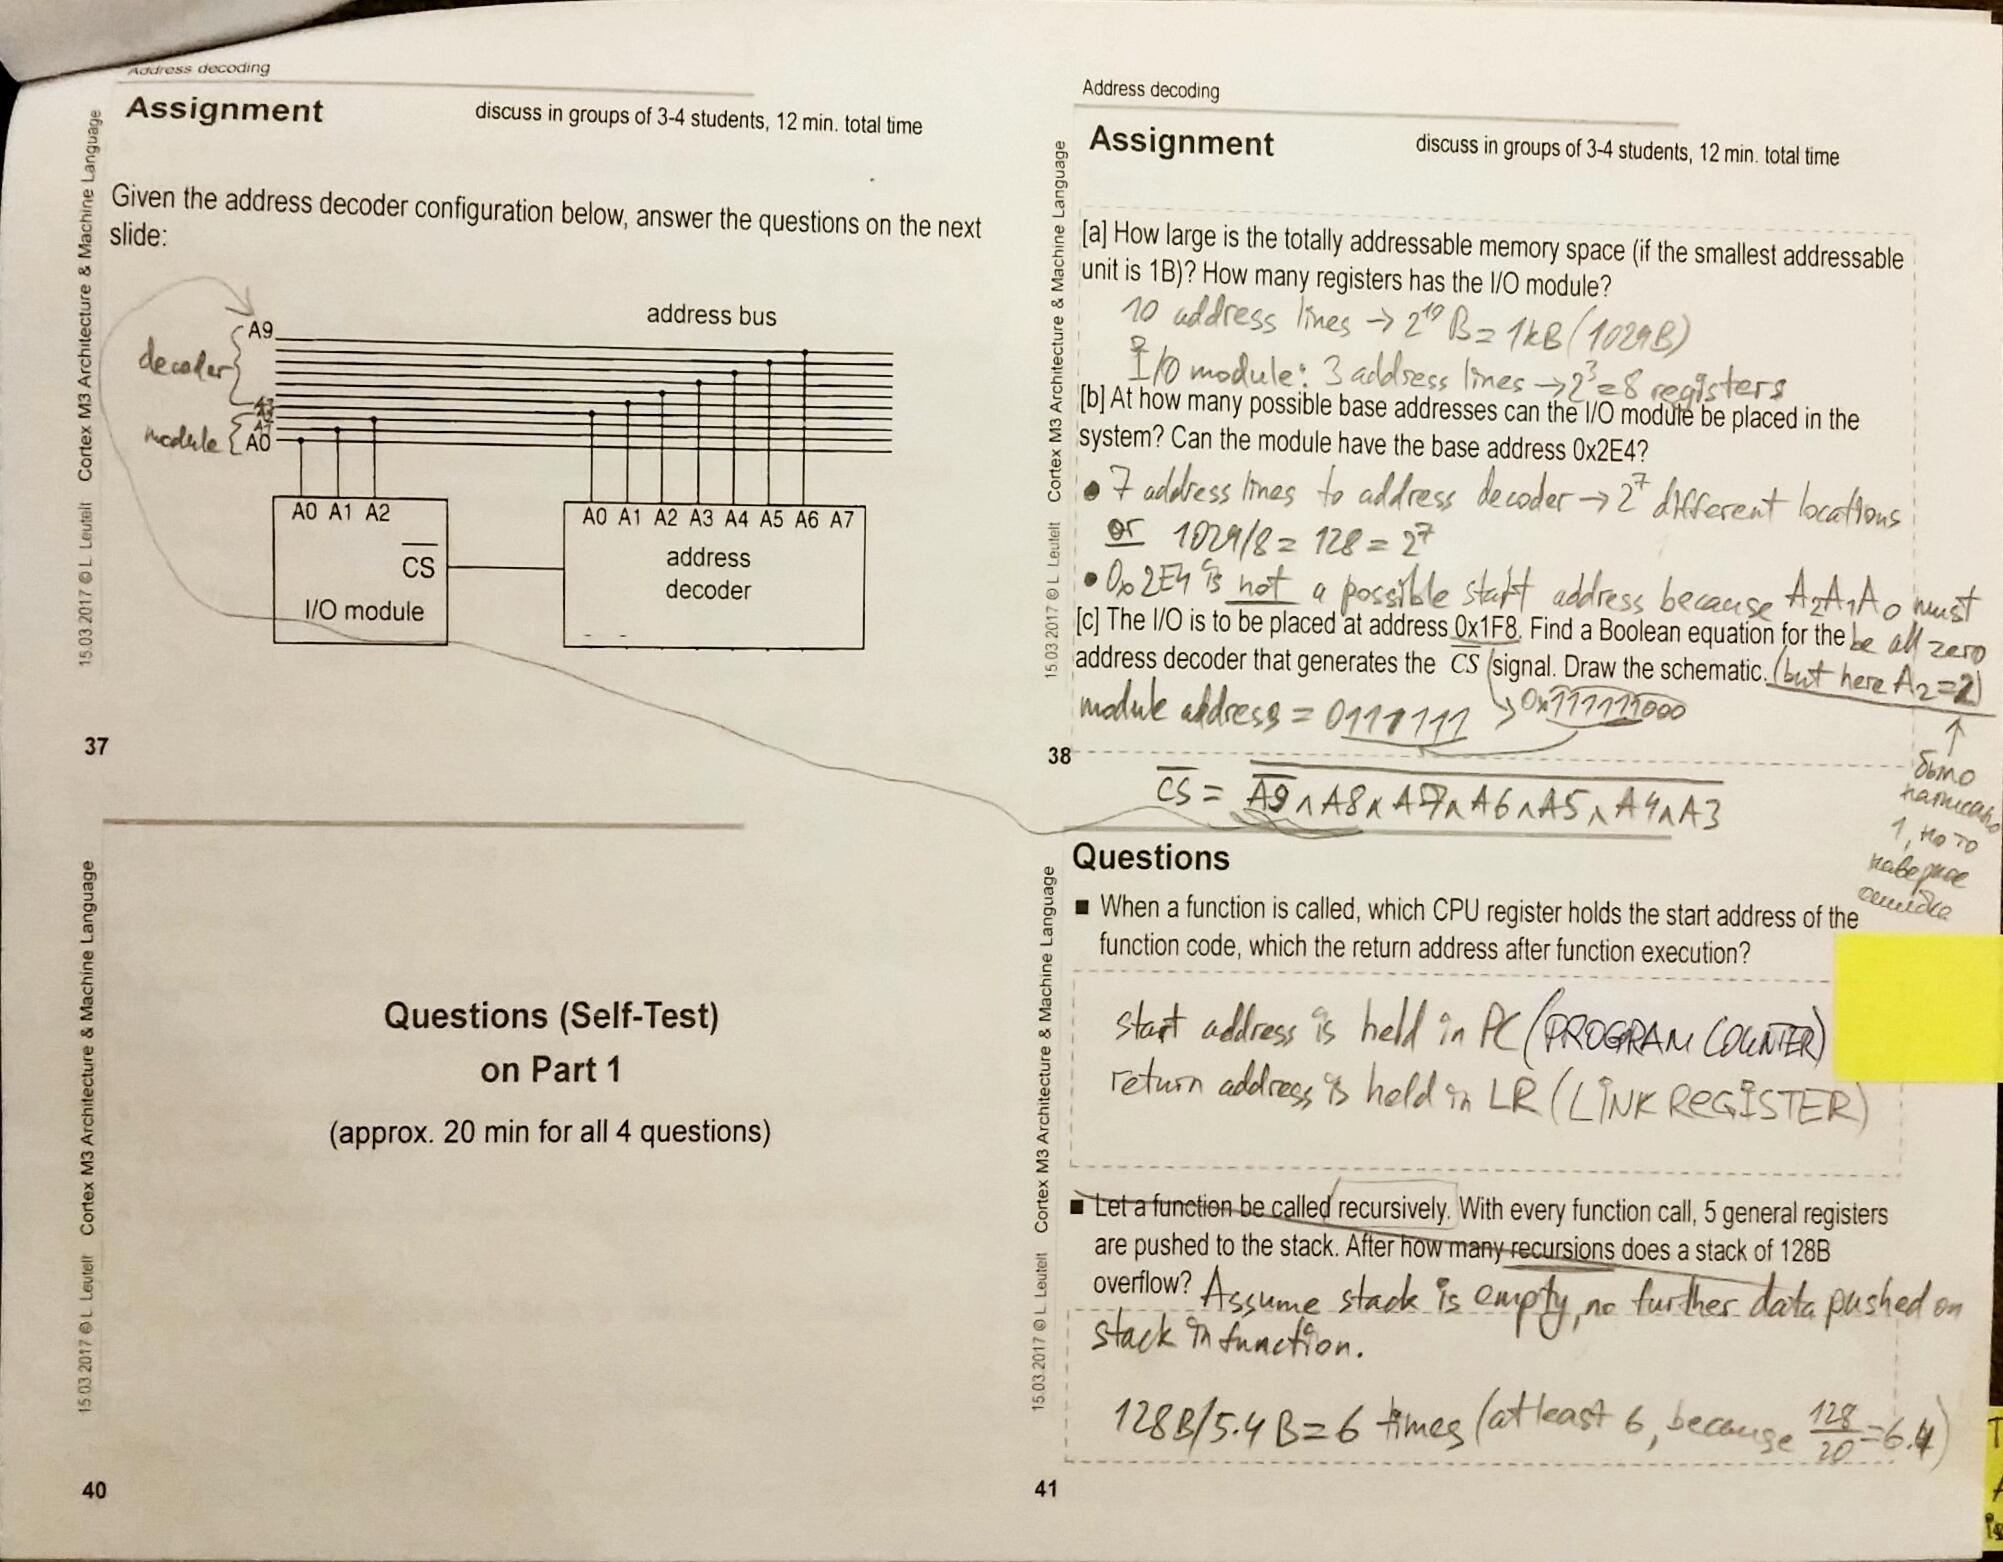 Address decoding
Assignment
discuss in groups of 3-4 students, 12 min. total time
Given the address decoder configuration below, answer the questions on the next
slide:
address bus
A9
decoder
A3
A2
A1
module
A0
A0 A1 A2
CS
I/O module
A0 A1 A2 A3 A4 A5 A6 A7
address
decoder
15.03.2017 © L. Leutelt Cortex M3 Architecture & Machine Language
37
Address decoding
Assignment
discuss in groups of 3-4 students, 12 min. total time
[a] How large is the totally addressable memory space (if the smallest addressable
unit is 1B)? How many registers has the I/O module?
10 address lines → 2¹⁰ B = 1kB (1024B)
I/O module: 3 address lines → 2³=8 registers
[b] At how many possible base addresses can the I/O module be placed in the
system? Can the module have the base address 0x2E4?
• 7 address lines to address decoder → 2⁷ different locations
or 1024/8 = 128 = 2⁷
• 0x2E4 is not a possible start address because A₂A₁A₀ must
be all zero
(but here A₂=2)
[c] The I/O is to be placed at address 0x1F8. Find a Boolean equation for the
address decoder that generates the CS signal. Draw the schematic.
module address = 0111111 → 0x111111000
15.03.2017 © L. Leutelt Cortex M3 Architecture & Machine Language
38
CS = A9 ∧ A8 ∧ A7 ∧ A6 ∧ A5 ∧ A4 ∧ A3
↑
было
написано
1, но то
наверное
ошибка
Questions (Self-Test)
on Part 1
(approx. 20 min for all 4 questions)
15.03.2017 © L. Leutelt Cortex M3 Architecture & Machine Language
40
Questions
■ When a function is called, which CPU register holds the start address of the
function code, which the return address after function execution?
start address is held in PC (PROGRAM COUNTER)
return address is held in LR (LINK REGISTER)
■ Let a function be called recursively. With every function call, 5 general registers
are pushed to the stack. After how many recursions does a stack of 128B
overflow? Assume stack is empty, no further data pushed on
stack in function.
128B/5.4B = 6 times (at least 6, because 128/20 = 6.4)
15.03.2017 © L. Leutelt Cortex M3 Architecture & Machine Language
41